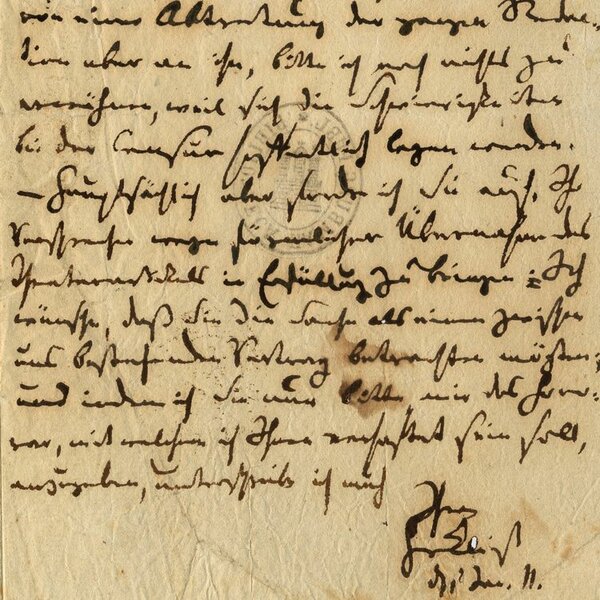 von einer Abtretung der ganzen Redac-
tion aber an ihn, bitte ich noch nichts zu
erwähnen, weil sich die Schwierigkeiten
bei der Censur hoffentlich legen werden.
— Hauptsächlich aber fordre ich Sie auf, Ihr
Versprechen wegen förmlicher Übernahme des
Theaterartikels in Erfüllung zu bringen; Ich
wünsche, daß Sie die Sache als einen zwischen
uns bestehenden Vertrag betrachten mögten;
und indem ich Sie nur bitte, mir das Hono-
rar, mit welchem ich Ihnen verhaftet sein soll,
anzugeben, unterschreibe ich mich
Ihr
H v Kleist
Jan. 11.